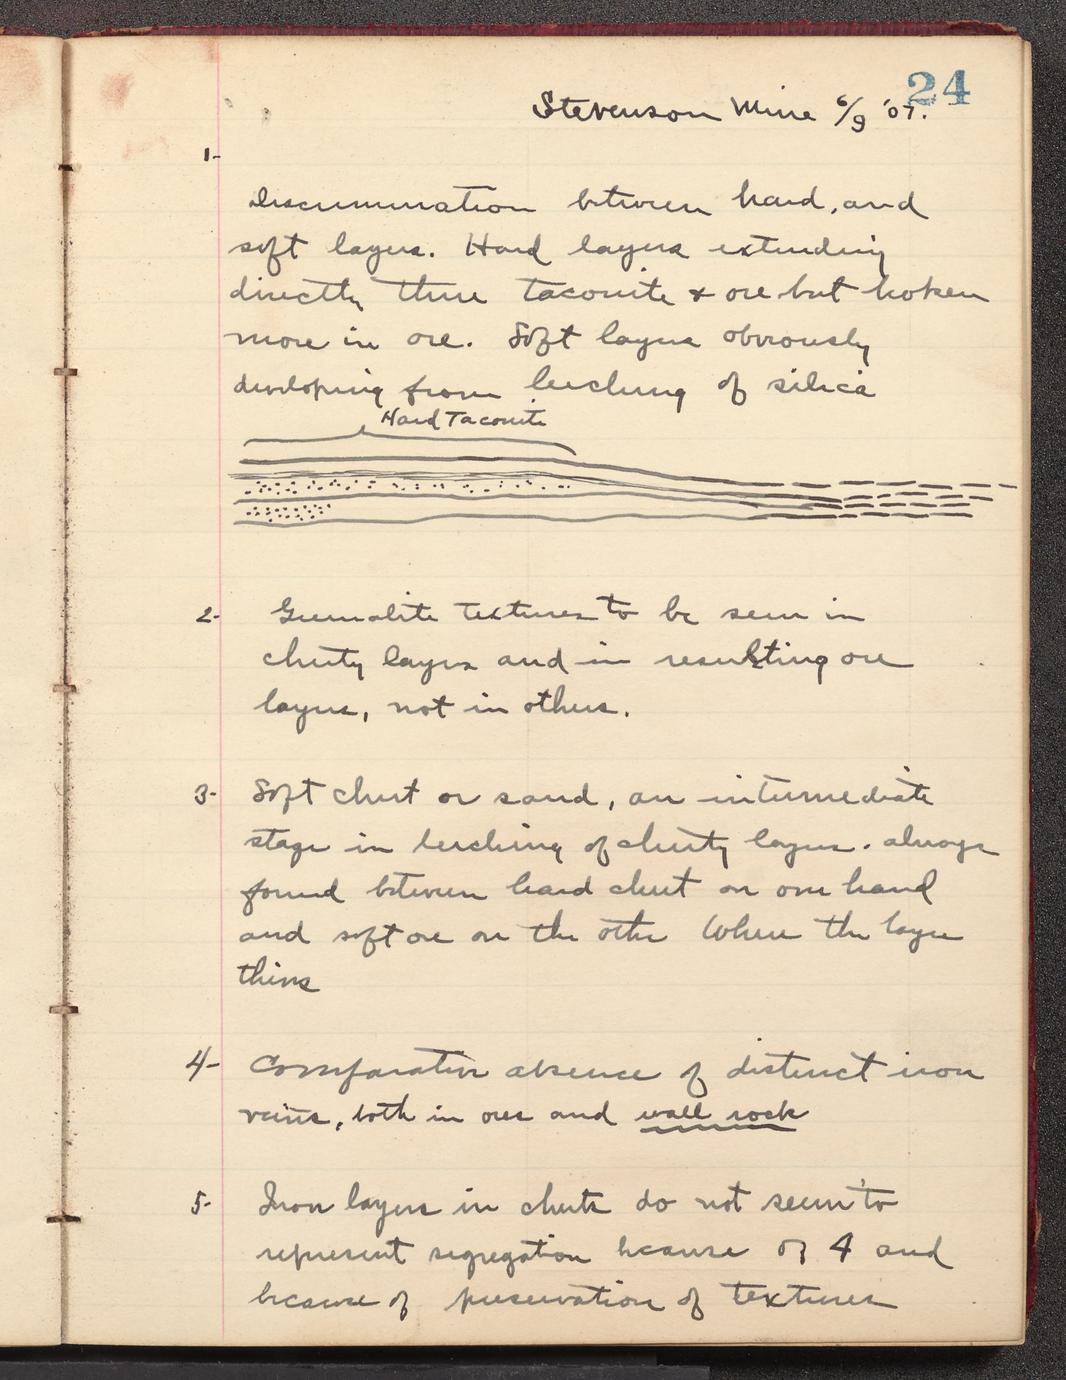 24
Stevenson Mine 6/9 '07.
1-
Discrimination between hard, and
soft layers. Hard layers extending
directly thru taconite & ore but broken
more in ore. Soft layers obviously
developing from leeching of silica
Hard Taconite
2- Greenalite textures to be seen in
cherty layers and in resulting ore
layers, not in others.
3- Soft chert or sand, an intermediate
stage in leeching of cherty layers. always
found between hard chert on one hand
and soft ore on the other Where the layer
thins
4- Comparative absence of distinct iron
veins, both in ores and wall rock
5- Iron layers in cherts do not seem to
represent segregation because of 4 and
because of preservation of textures